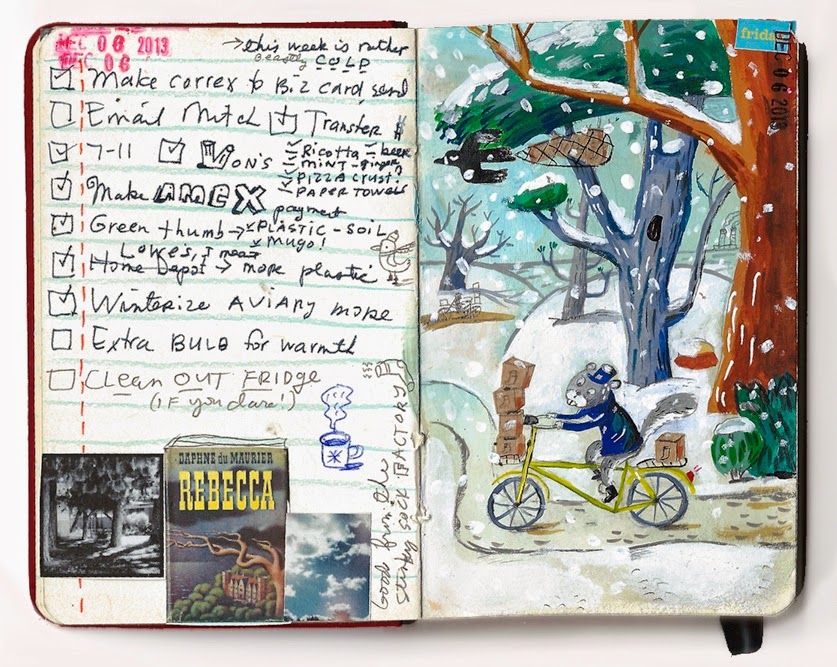 DEC 06 2013
DEC 06
→this week is rather
beastly COLD
Make correx to Biz card, send
Email Mitch
Transfer $
7-11
VON'S
Ricotta - beer
MINT - ginger
PIZZA CRUST!
PAPER TOWELS
Make AMEX payment
Green thumb → PLASTIC - SOIL
MUGO!
LOWES, I meant
Home Depot → more plastic
Winterize AVIARY more
Extra BULB for warmth
CLEAN OUT FRIDGE
(IF you dare!)
FACTORY
DAPHNE du MAURIER
REBECCA
friday
DEC 06 2013